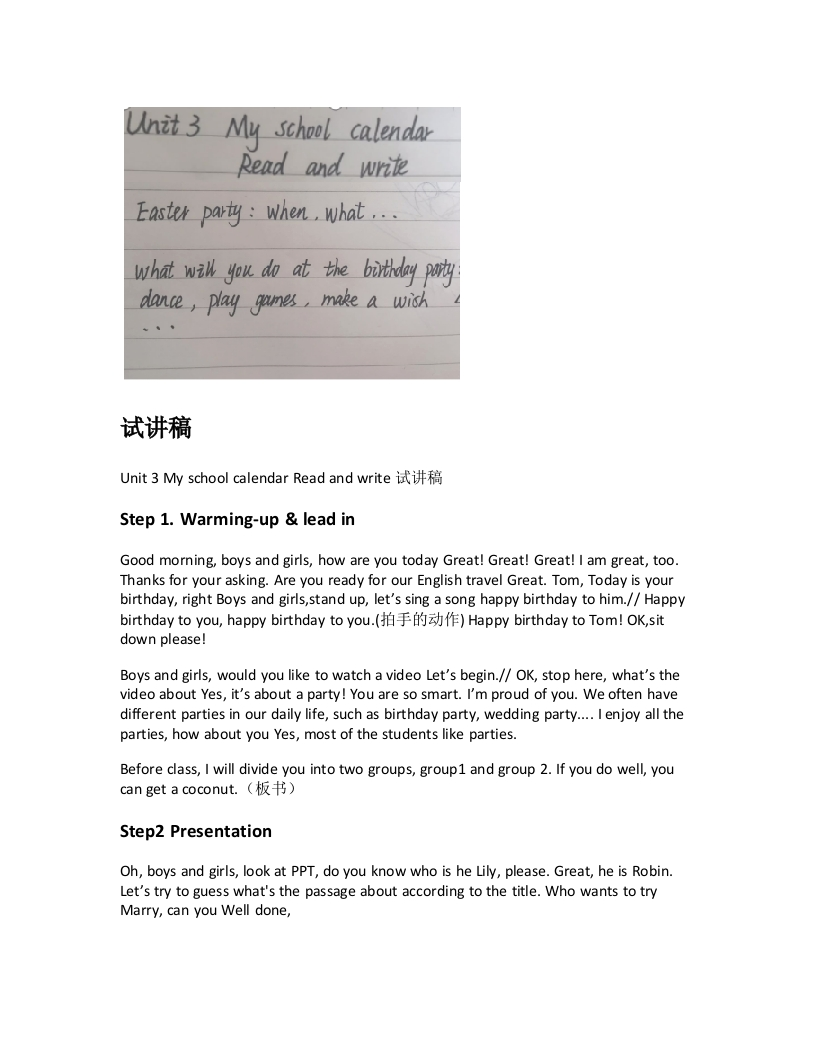 Unit 3 My school calendar
Read and write
Easter party : when , what ...
What will you do at the birthday party:
dance , play games , make a wish
...
试讲稿
Unit 3 My school calendar Read and write 试讲稿
Step 1. Warming-up & lead in
Good morning, boys and girls, how are you today Great! Great! Great! I am great, too.
Thanks for your asking. Are you ready for our English travel Great. Tom, Today is your
birthday, right Boys and girls,stand up, let’s sing a song happy birthday to him.// Happy
birthday to you, happy birthday to you.(拍手的动作) Happy birthday to Tom! OK,sit
down please!
Boys and girls, would you like to watch a video Let’s begin.// OK, stop here, what’s the
video about Yes, it’s about a party! You are so smart. I’m proud of you. We often have
different parties in our daily life, such as birthday party, wedding party.... I enjoy all the
parties, how about you Yes, most of the students like parties.
Before class, I will divide you into two groups, group1 and group 2. If you do well, you
can get a coconut.（板书）
Step2 Presentation
Oh, boys and girls, look at PPT, do you know who is he Lily, please. Great, he is Robin.
Let’s try to guess what's the passage about according to the title. Who wants to try
Marry, can you Well done,